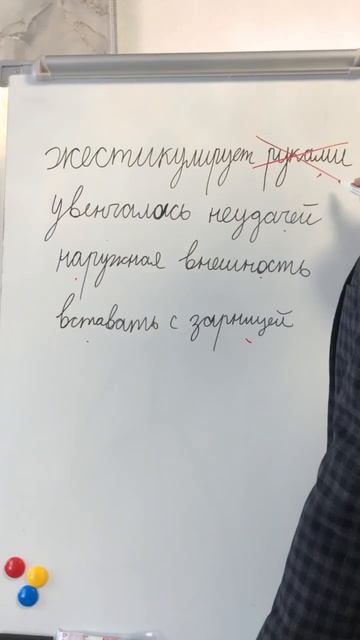 жестикулирует руками
увенчалась неудачей
наружная внешность
вставать с зарницей